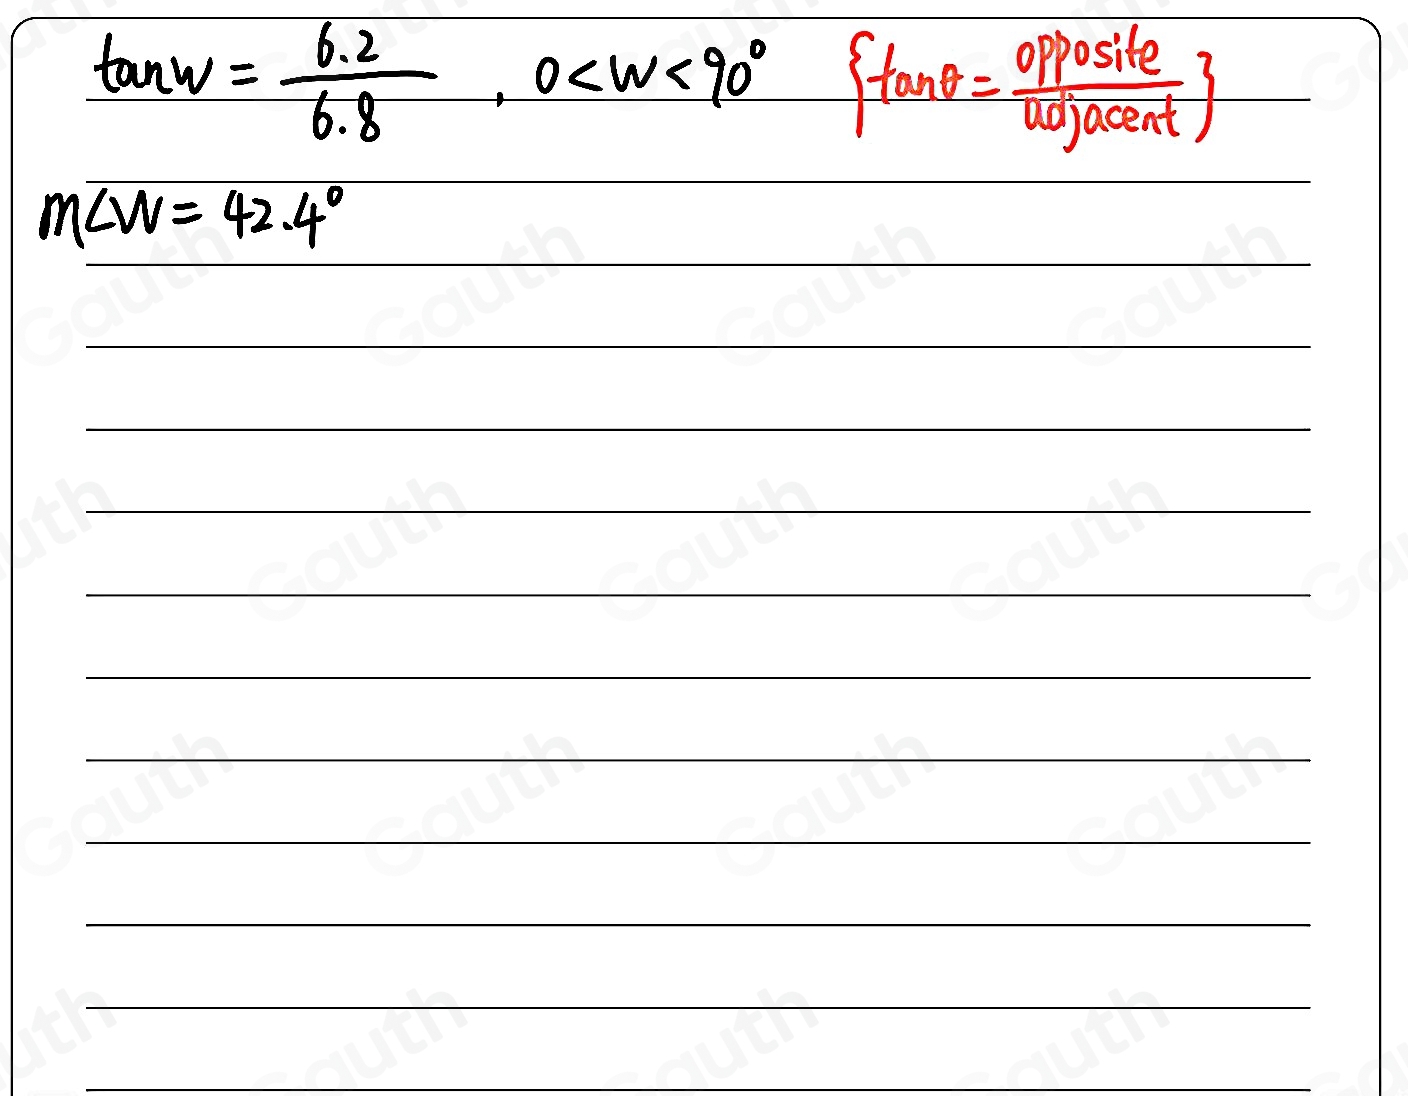 tanW = 6.2/6.8 , 0<W<90° {tanθ = opposite/adjacent}
m∠W = 42.4°
Gauth Gauth Gauth Gauth
Gauth Gauth Gauth Gauth
Gauth Gauth Gauth Gauth
Gauth Gauth Gauth Gauth